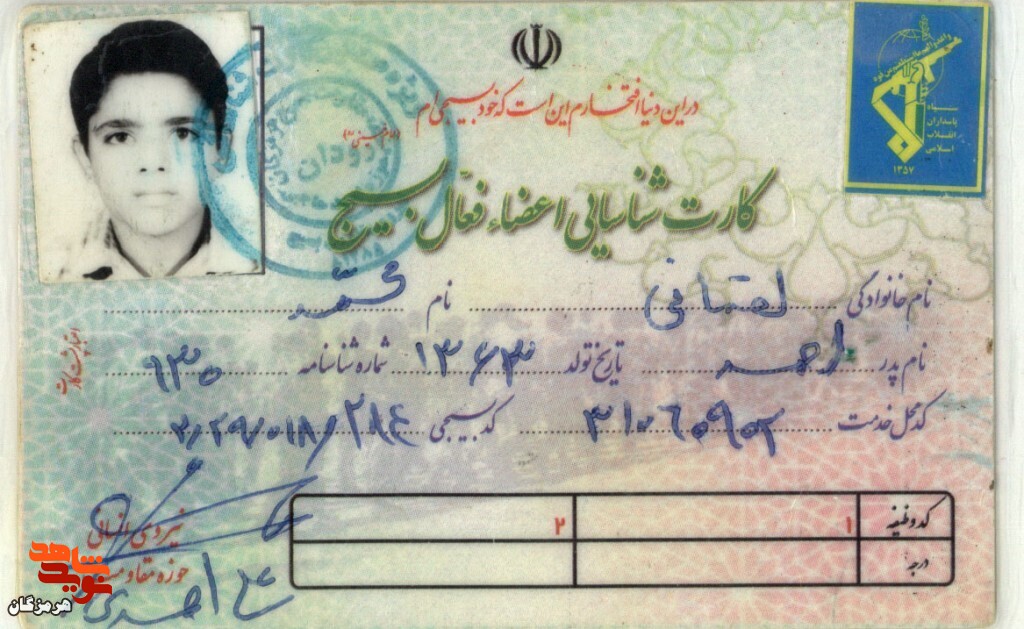 سپاه
پاسداران
انقلاب
اسلامی
۱۳۵۷
در این دنیا افتخارم این است که خود بسیجی ام
کارت شناسایی اعضاء فعال بسیج
رودان
نام خانوادگی لقمانی نام محمد
نام پدر احمد تاریخ تولد ۱۳۶۳ شماره شناسنامه ۶۳۰
کد محل خدمت ۳۱۰۶۰۵۹۰۲ کد بسیجی ۲/۲۹۷۰۱۸/۲۸۴
کد وظیفه ۱ ۲
درجه:
نیروی انسانی
حوزه مقاومت
نوید شاهد
هرمزگان